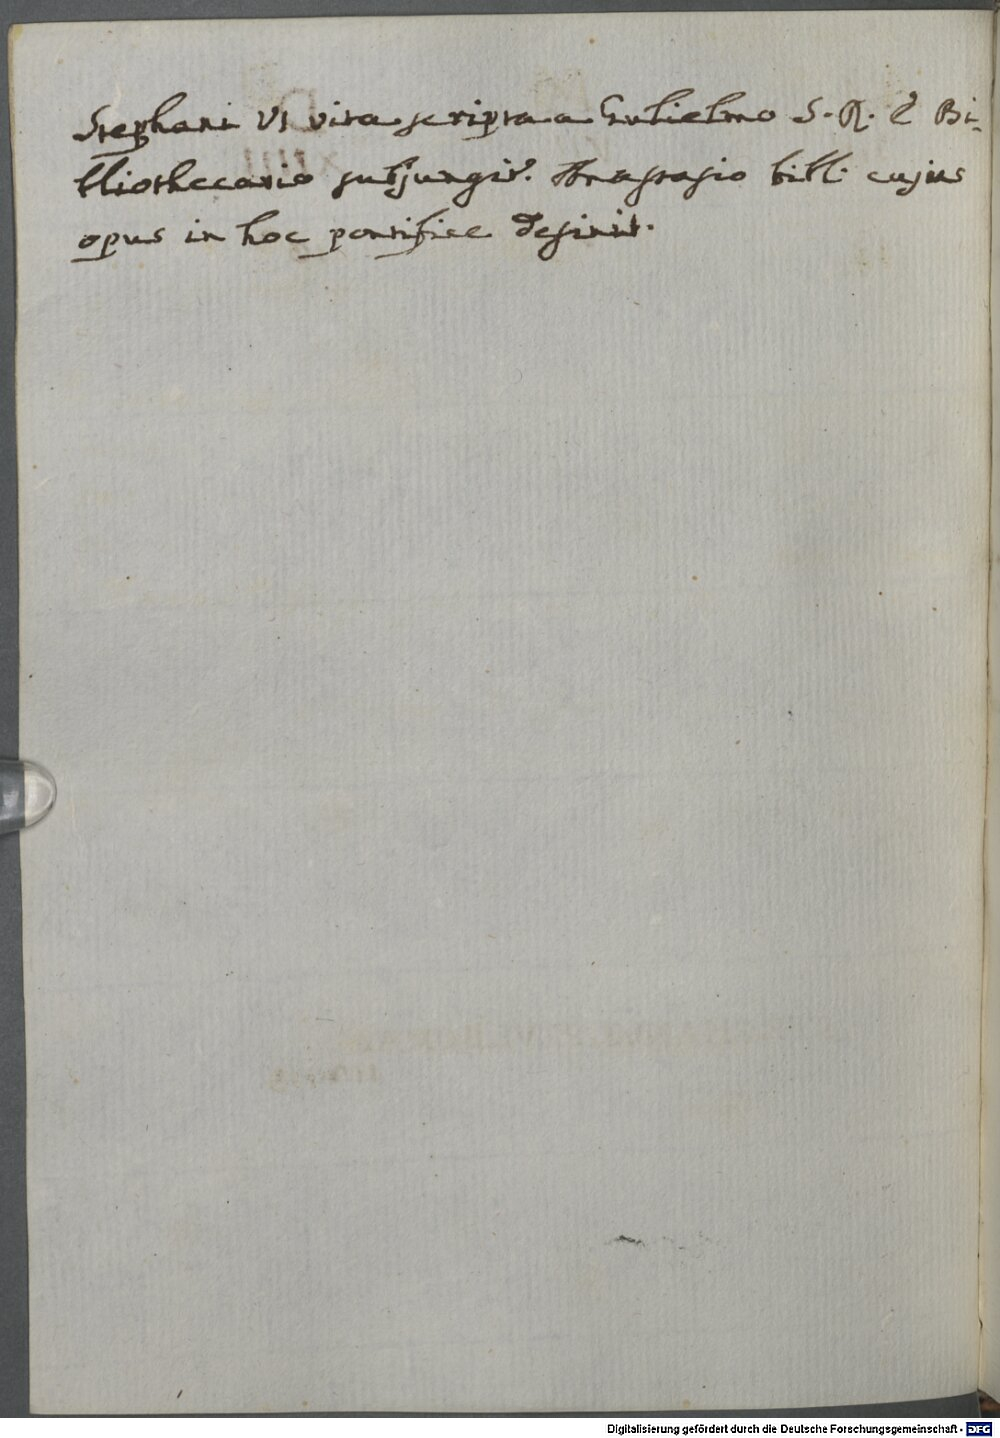 Stephani VI vita scripta a Gulielmo S. R. E Bi-
bliothecario subjungitr. Anastasio bibl. cujus
opus in hoc pontifice desinit.
Digitalisierung gefördert durch die Deutsche Forschungsgemeinschaft - DFG